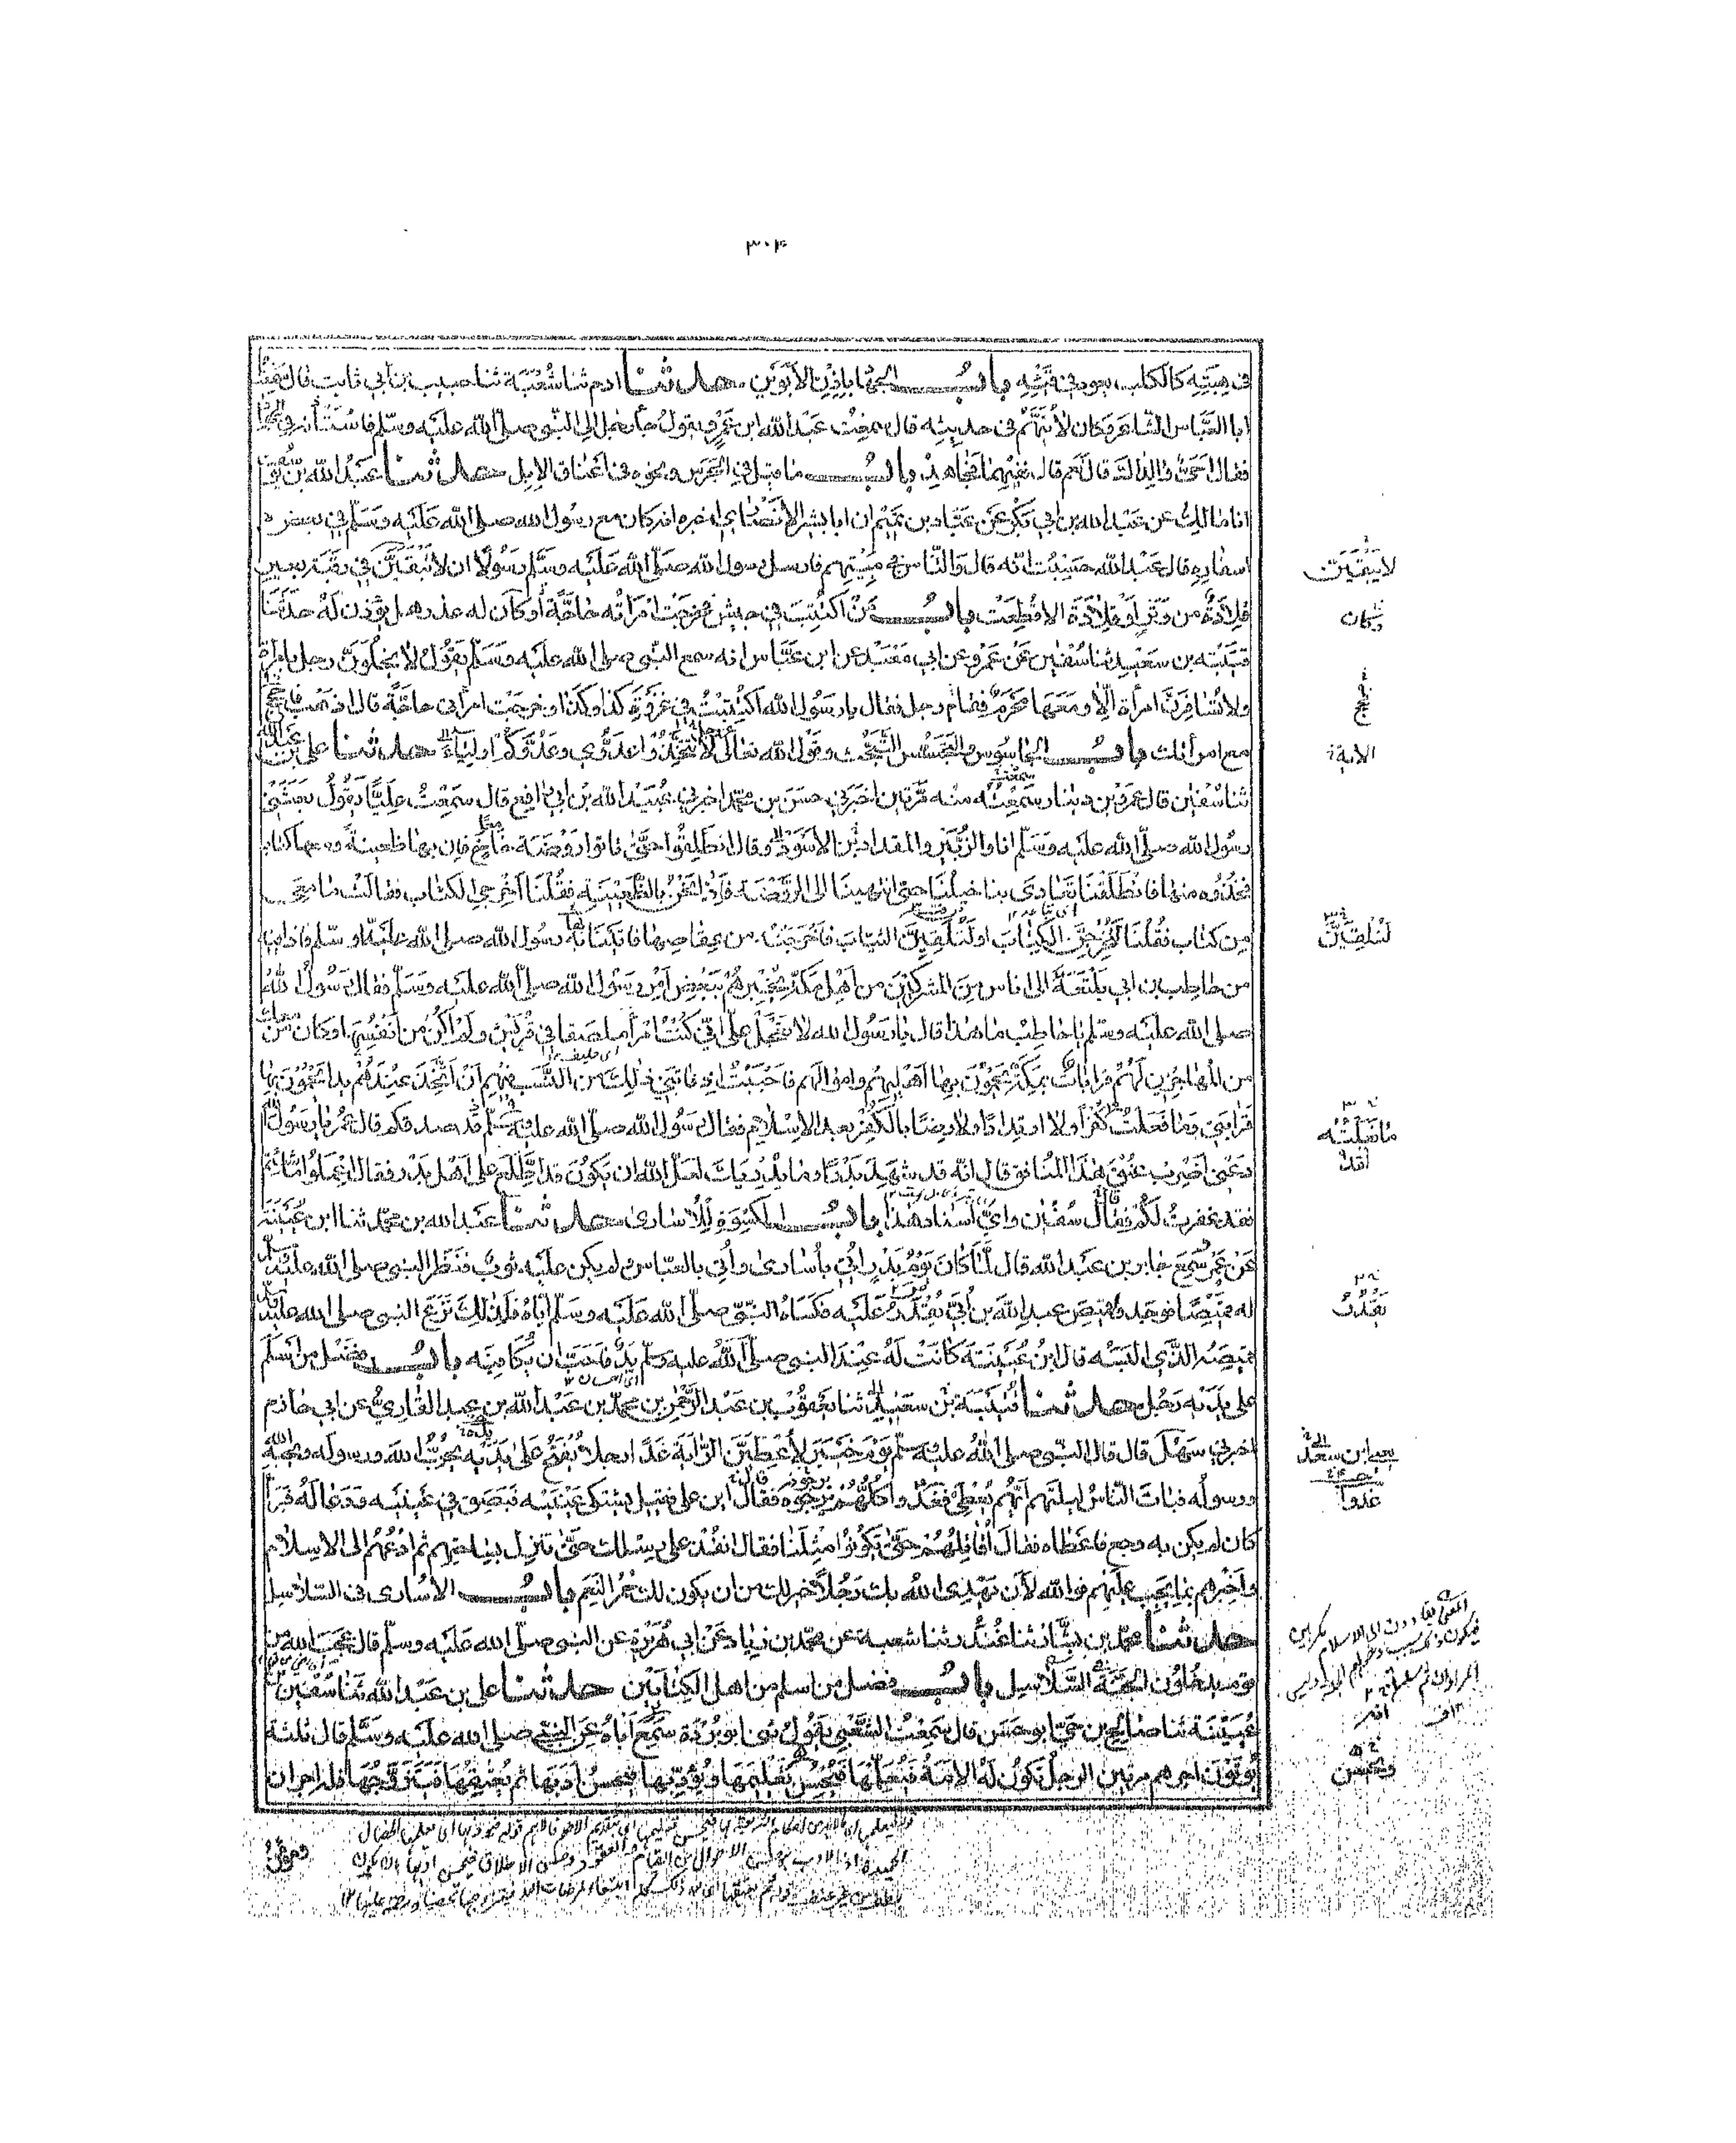 ۳۰۴
في هبته كالكلب يعود في قيئه باب الجهاد باذن الأبوين حدثنا ادم ثنا شعبة ثنا حبيب بن أبي ثابت قال سمعت
ابا العباس الشاعر وكان لا يتهم في حديثه قال سمعت عبد الله ابن عمرو يقول جاء رجل الى النبي صلى الله عليه وسلم فاستأذنه في الجهاد
فقال احي والداك قال نعم قال ففيهما فجاهد باب ما قيل في الجرس ونحوه في اعناق الابل حدثنا عبد الله بن يوسف
انا مالك عن عبد الله بن ابي بكر عن عباد بن تميم ان ابا بشير الأنصاري اخبره انه كان مع رسول الله صلى الله عليه وسلم في بعض
اسفاره قال عبد الله حسبت انه قال والناس في مبيتهم فارسل رسول الله صلى الله عليه وسلم رسولا ان لا تبقين في رقبة بعير
لا يبقين
قلادة من وتر او قلادة الا قطعت باب من اكتتب في جيش فخرجت امرأته حاجة أو كان له عذر هل يؤذن له حدثنا
وكان
قتيبة بن سعيد ثنا سفين عن عمرو عن ابي معبد عن ابن عباس انه سمع النبي صلى الله عليه وسلم يقول لا يخلون رجل بامرأة
ولا تسافرن امرأة الا ومعها محرم فقام رجل فقال يا رسول الله اكتتبت في غزوة كذا وكذا وخرجت امرأتي حاجة قال اذهب فاحجج
فحج
مع امرأتك باب الجاسوس والتجسس التبحث وقول الله تعالى لا تتخذوا عدوي وعدوكم اولياء حدثنا علي بن عبد الله
الاية
ثنا سفين قال عمرو بن دينار سمعته منه مرتين اخبرني حسن بن محمد اخبرني عبيد الله بن ابي رافع قال سمعت عليا يقول بعثني
رسول الله صلى الله عليه وسلم انا والزبير والمقداد بن الاسود وقال انطلقوا حتى تاتوا روضة خاخ فان بها ظعينة ومعها كتاب
فخذوه منها فانطلقنا تعادى بنا خيلنا حتى انتهينا الى الروضة فاذا نحن بالظعينة فقلنا اخرجي الكتاب فقالت ما معي
من كتاب فقلنا لتخرجن الكتاب او لتلقين الثياب فاخرجته من عقاصها فاتينا به رسول الله صلى الله عليه وسلم فاذا فيه
لتلقين
من حاطب بن ابي بلتعة الى اناس من المشركين من اهل مكة يخبرهم ببعض امر رسول الله صلى الله عليه وسلم فقال رسول الله
صلى الله عليه وسلم يا حاطب ما هذا قال يا رسول الله لا تعجل علي اني كنت امرأ ملصقا في قريش ولم اكن من أنفسها وكان من معك
من المهاجرين لهم قرابات بمكة يحمون بها اهليهم واموالهم فاحببت اذ فاتني ذلك من النسب فيهم ان اتخذ عندهم يدا يحمون بها
قرابتي وما فعلت كفرا ولا ارتدادا ولا رضا بالكفر بعد الاسلام فقال رسول الله صلى الله عليه وسلم قد صدقكم قال عمر يا رسول الله
ما فعلته
دعني اضرب عنق هذا المنافق قال انه قد شهد بدرا وما يدريك لعل الله ان يكون قد اطلع على اهل بدر فقال اعملوا ما شئتم
فقد غفرت لكم فقال سفين واي اسناد هذا باب الكسوة للأسارى حدثنا عبد الله بن محمد ثنا ابن عيينة
عن عمرو سمع جابر بن عبد الله قال لما كان يوم بدر اتي بأسارى وأتي بالعباس ولم يكن عليه ثوب فنظر النبي صلى الله عليه وسلم
له قميصا فوجدوا قميص عبد الله بن أبي يقدر عليه فكساه النبي صلى الله عليه وسلم اياه فلذلك نزع النبي صلى الله عليه وسلم
يقدر
قميصه الذي البسه قال ابن عيينة كانت له عند النبي صلى الله عليه وسلم يد فاحب ان يكافيه باب فضل من اسلم
على يديه رجل حدثنا قتيبة بن سعيد ثنا يعقوب بن عبد الرحمن بن محمد بن عبد الله بن عبد القاري عن ابي حازم
اخبرني سهل قال قال النبي صلى الله عليه وسلم يوم خيبر لأعطين الراية غدا رجلا يفتح على يديه يحب الله ورسوله ويحبه الله
يعني ابن سعد
ورسوله فبات الناس ليلتهم ايهم يعطى فغدوا كلهم يرجوه فقال اين علي فقيل يشتكي عينيه فبصق في عينيه ودعا له فبرأ
غدوا
كان لم يكن به وجع فاعطاه فقال أقاتلهم حتى يكونوا مثلنا فقال انفذ على رسلك حتى تنزل بساحتهم ثم ادعهم الى الاسلام
واخبرهم بما يجب عليهم فوالله لأن يهدي الله بك رجلا خير لك من ان يكون لك حمر النعم باب الأسارى في السلاسل
حدثنا محمد بن بشار ثنا غندر ثنا شعبة عن محمد بن زياد عن ابي هريرة عن النبي صلى الله عليه وسلم قال عجب الله من
قوم يدخلون الجنة في السلاسل باب فضل من اسلم من اهل الكتابين حدثنا علي بن عبد الله ثنا سفين بن
عيينة ثنا صالح بن حي ابو حسن قال سمعت الشعبي يقول ثني ابو بردة سمع أباه عن النبي صلى الله عليه وسلم قال ثلثة
يؤتون اجرهم مرتين الرجل تكون له الامة فيعلمها فيحسن تعليمها ويؤدبها فيحسن أدبها ثم يعتقها فيتزوجها فله اجران